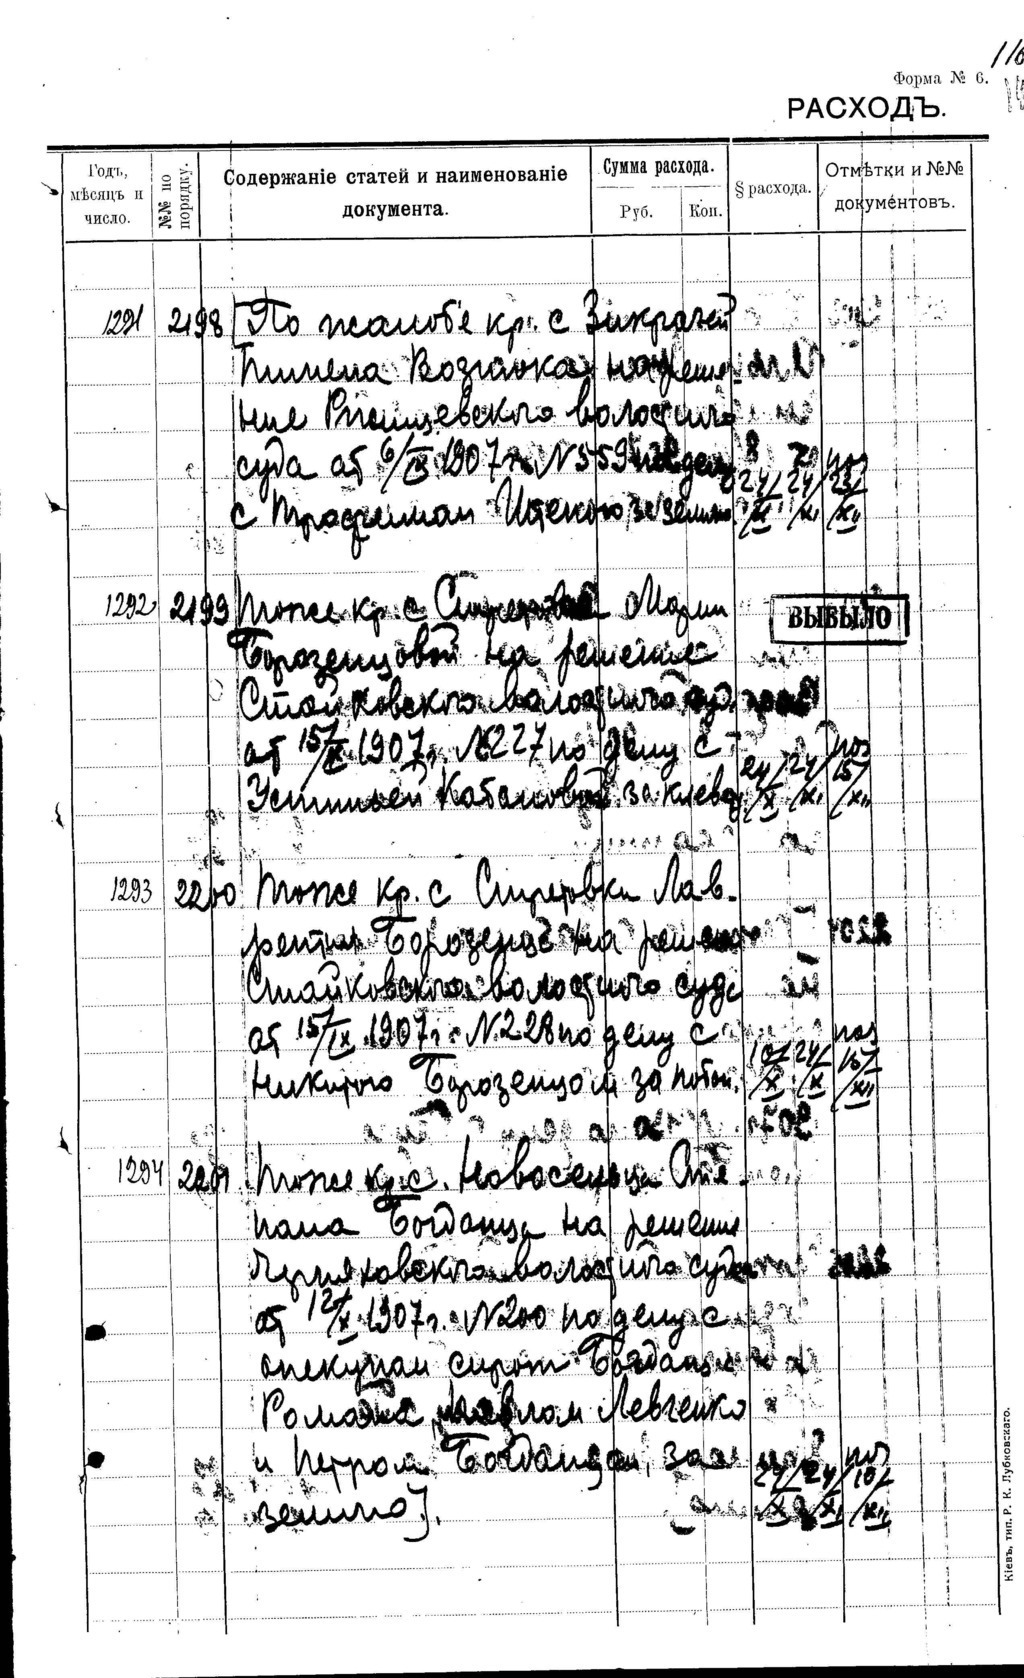 116
Форма № 6.
РАСХОДЪ.
Годъ, мѣсяцъ и число.
№№ по порядку.
Содержаніе статей и наименованіе документа.
Сумма расхода.
Руб.
Коп.
§ расхода.
Отмѣтки и №№ документовъ.
1291 2198 [По жалобе кр. с Зикрачей
Пимена на реше-
ние Ржищевского волостного
суда от 6/IX 1907 г. N 559 по делу
с Трофимом за землю 24/X 24/XI 23/XII
1292 2199 Тоже кр. с Стретовки Марии
ВЫБЫЛО
Борозенцовой на решение
Стайковского волостного суда
от 15/IX 1907 г. N 227 по делу с
Устиньей Кабановой за клевету 24/X 24/XI 15/XII
1293 2200 Тоже кр. с Стретовки Лав-
рентия Борозенца на решение
Стайковского волостного суда
от 15/IX 1907 г. N. 228 по делу с
Никитою Борозенцом за 10/X 24/X 15/XII
1294 2201 Тоже кр. с. Новоселица Сте-
пана Богданца на решение
Черняховского волостного суда
от 12/X 1907 г. N 200 по делу с
опекунам сирот Богданца
Романа Павлом Левченко
и Петром Богданцом, за
землю]. 24/X 24/XI 10/XII
Кіевъ, тип. Р. К. Лубковскаго.